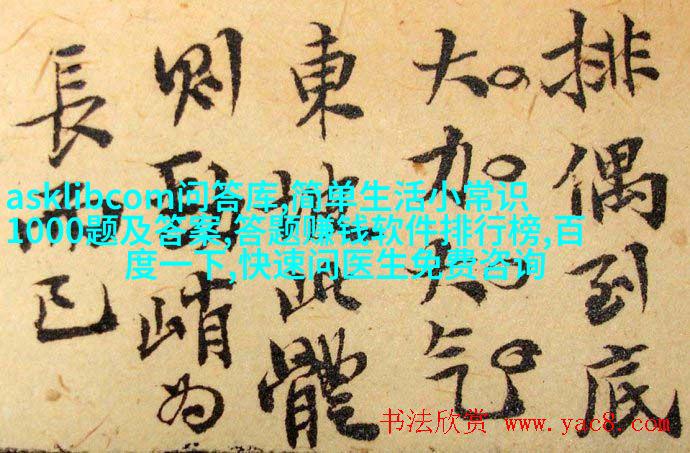 排偶到底
大加大气
東坡此體
則峭為
長已
asklibcom问答库,简单生活小常识
1000题及答案,答题赚钱软件排行榜,百
度一下,快速问医生免费咨询
书法欣赏 www.yac8.com